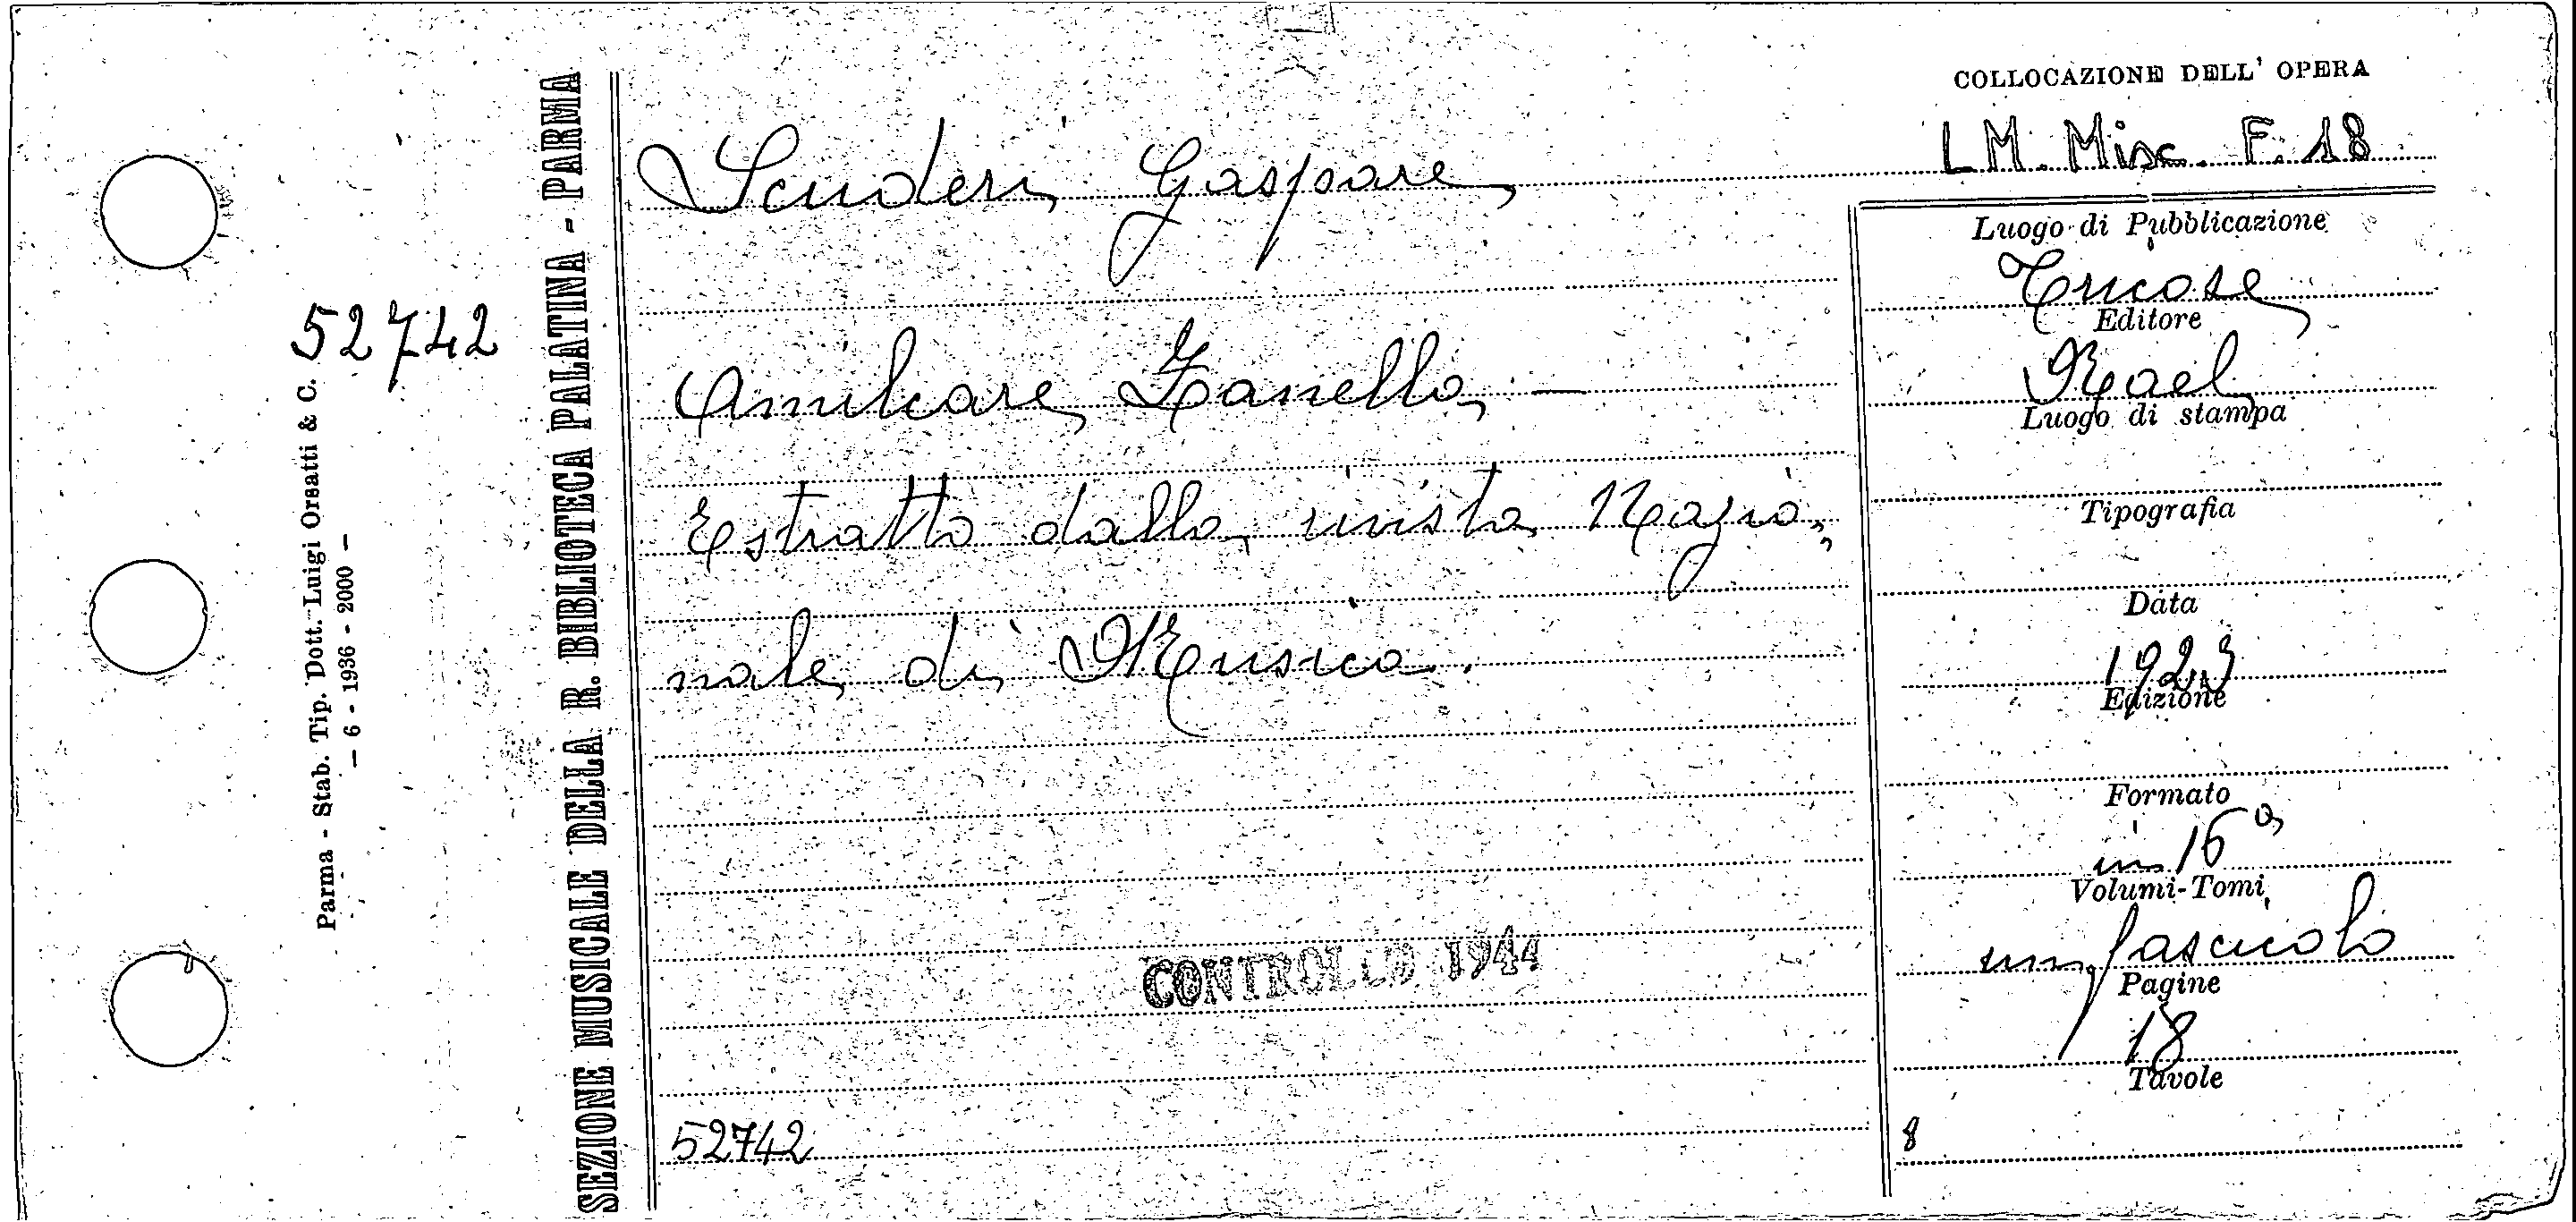 COLLOCAZIONE DELL' OPERA
LM. Misc. F. 18
Scuderi Gaspare
Amilcare Zanella —
Estratto dalla rivista Nazio=
nale di Musica.
CONTROLLO 1944
52742
Luogo di Pubblicazione
Editore
Luogo di stampa
Tipografia
Data
1923
Edizione
Formato
in 16°
Volumi-Tomi
un fascicolo
Pagine
18
Tavole
8
SEZIONE MUSICALE DELLA R. BIBLIOTECA PALATINA - PARMA
52742
Parma - Stab. Tip. Dott. Luigi Orsatti & C.
— 6 - 1936 - 2000 —